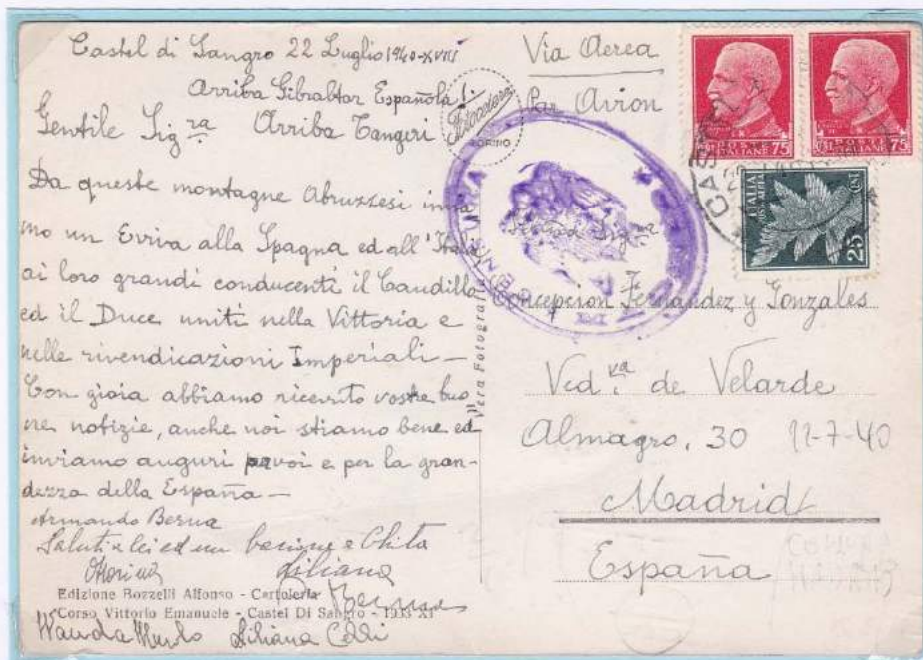 Castel di Sangro 22 Luglio 1940-XVIII
Arriba Gibraltar Española!
Gentile Sig.ra Arriba Tangeri
Da queste montagne Abruzzesi invia
mo un Evviva alla Spagna ed all'Italia
ai loro grandi conducenti il Caudillo
ed il Duce uniti nella Vittoria e
nelle rivendicazioni Imperiali—
Con gioia abbiamo ricevuto vostre buo
ne notizie, anche noi stiamo bene ed
inviamo auguri per voi e per la gran-
dezza della España—
Armando
Saluti a lei ed un bacione a Chita
Liliana
Edizione Bozzelli Alfonso - Cartoleria
Corso Vittorio Emanuele - Castel Di Sangro - 1933 XI
Wanda Liliana
Vera Fotografia
TORINO
CENSURA
Via Aerea
Par Avion
POSTE
ITALIANE 75
POSTE
ITALIANE 75
ITALIA
25
CASTEL
Concepcion Fernandez y Gonzales
Ved.va de Velarde
Almagro, 30 12-7-40
Madrid
España